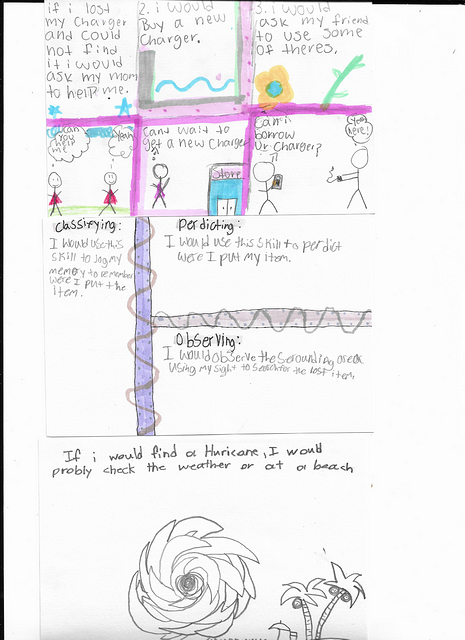 if i lost
my charger
and could
not find
it i would
ask my mom
to help me.
2. i would
Buy a new
Charger.
3. i would
ask my friend
to use some
of theres.
can
you
help
me
Yeah
Cant wait to
get a new charger
Store
Can i
borrow
ur charger?
Yea
here!
Classifying:
I would use this
skill to jog my
memory to remember
were I put the
item.
Perdicting:
I would use this skill to perdict
were I put my item.
Observing:
I would observe the serounding area
using my sight to search for the lost item.
If i would find a Huricane, I would
probly check the weather or at a beach